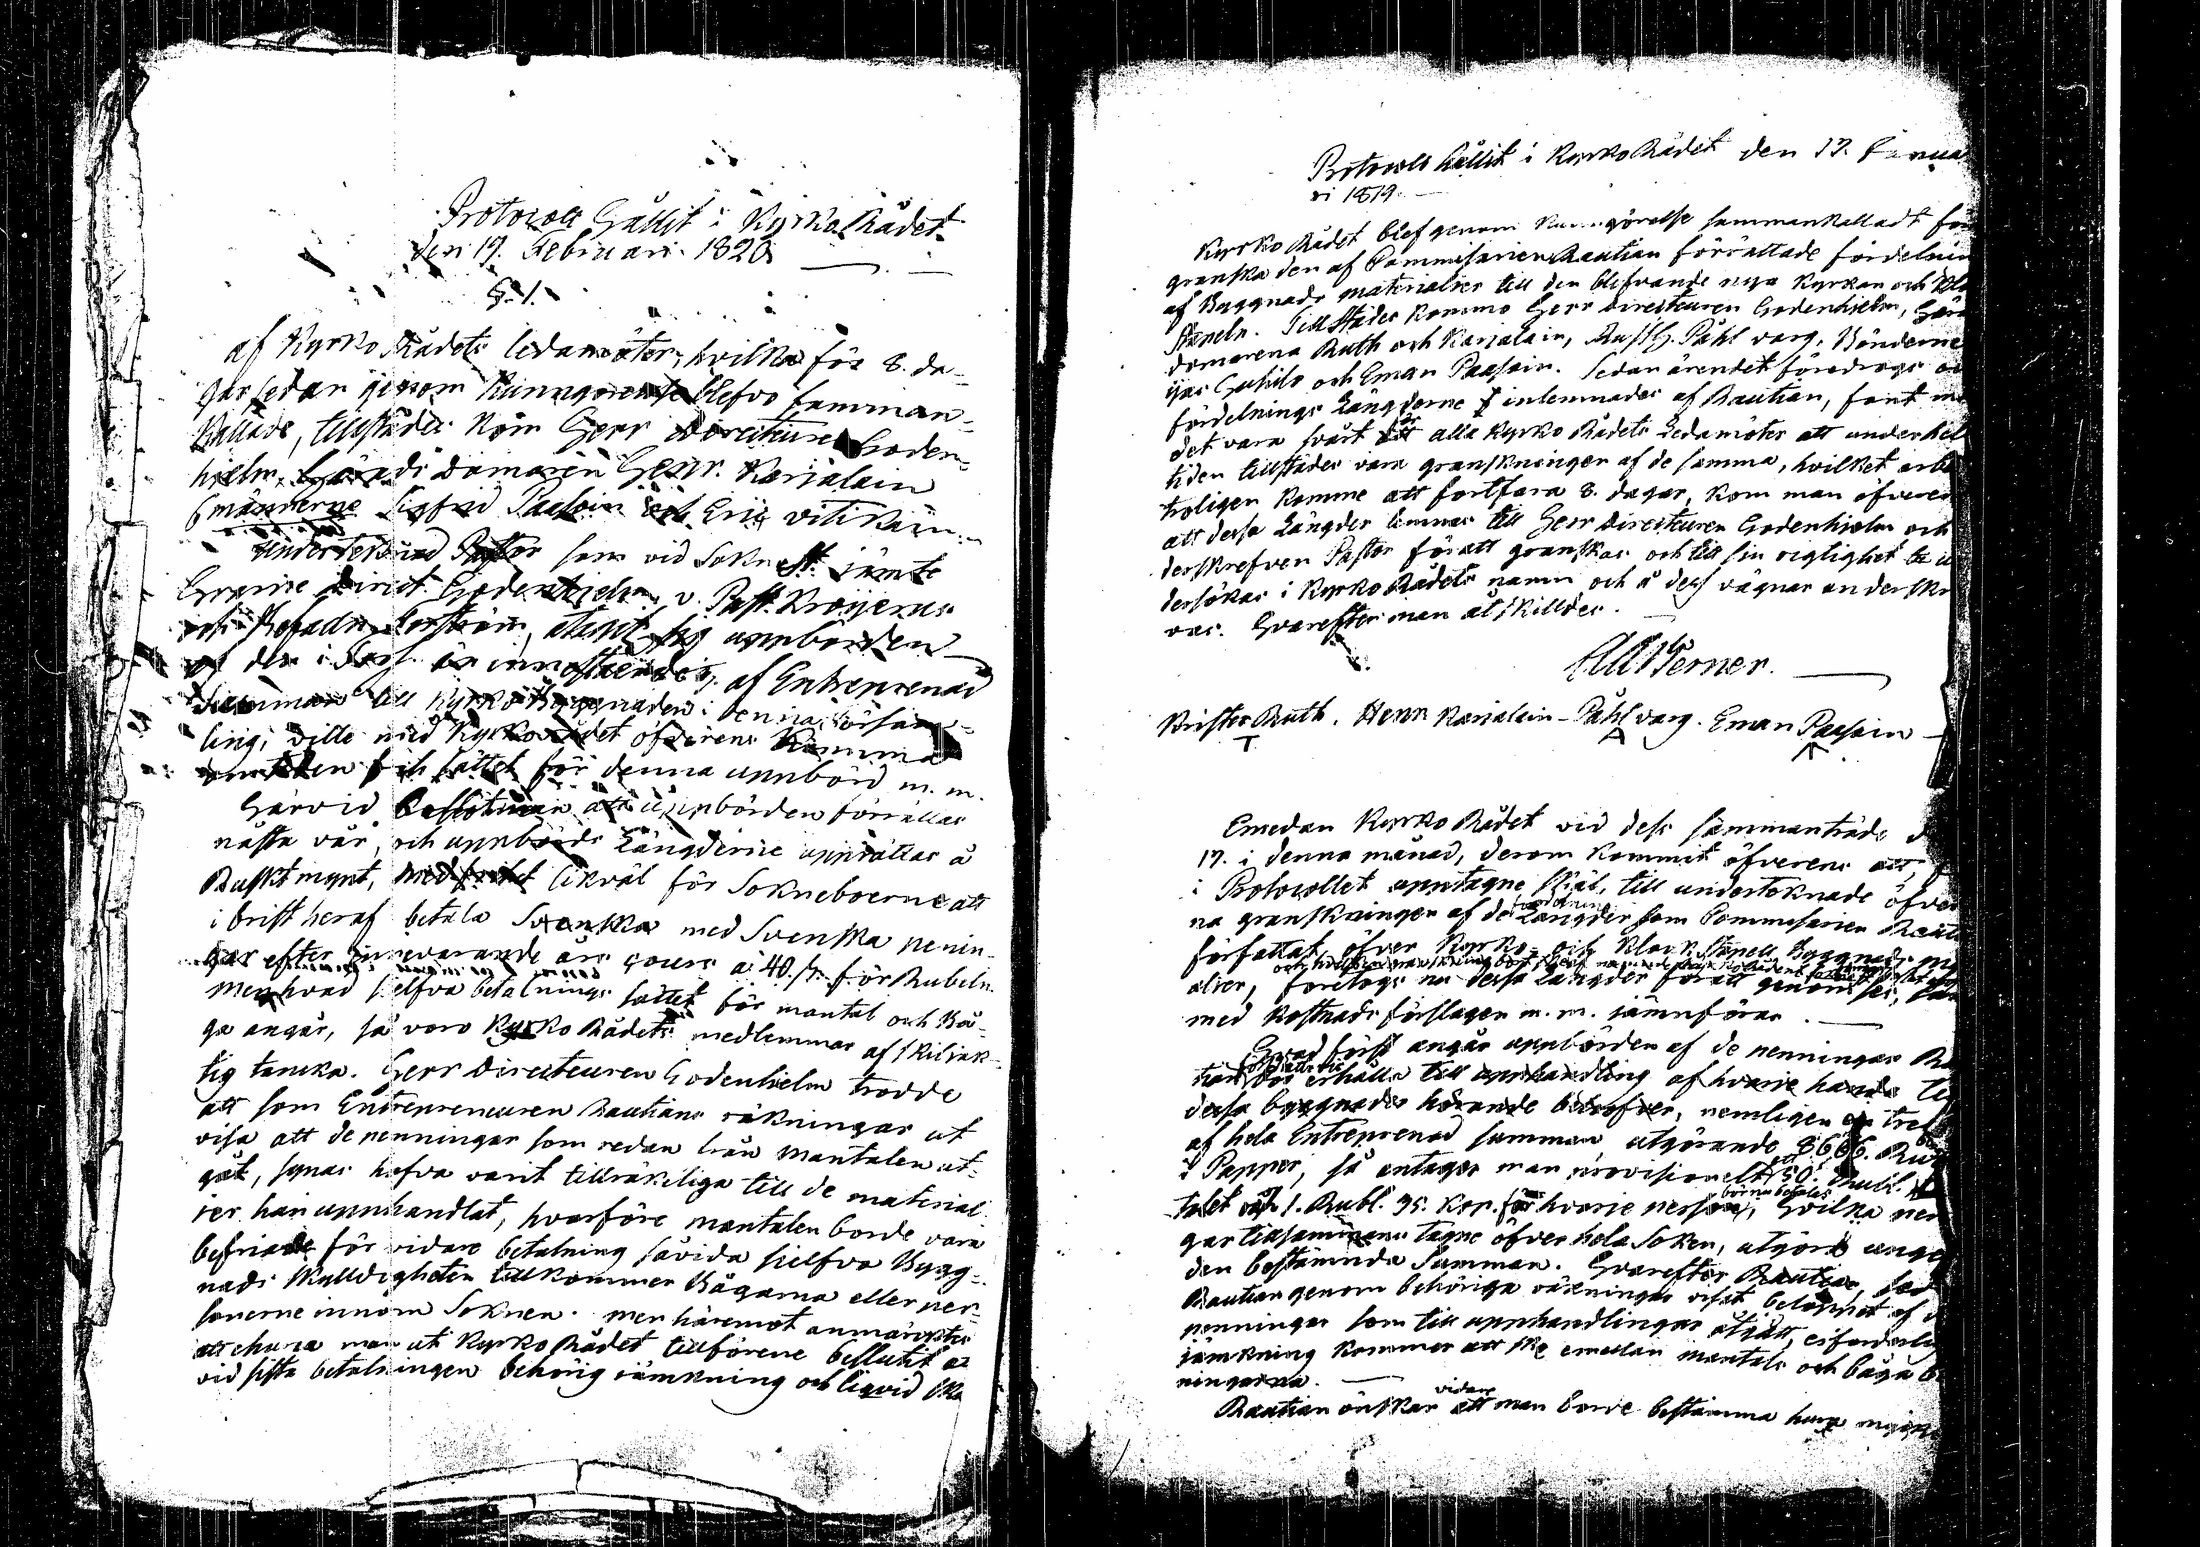 Protocoll hållit i Kyrko Rådet
den 17. Februari 1820
§. 1.
af Kyrko Rådets ledamöter, hvilka för 8. da-
gar sedan genom kunngörelse blefvo samman-
kallade, tillstädes kom Herr Directeuren Goden-
hjelm, Härads Domaren Henr. Karjalain
6männerne Sigfrid Paasoin och Eric Vitikain.
Undertecknad Pastor som vid Sokne st. jämte
Herrarne Direct. Godenhjelm, v. Past. Kroijerus
och åtagit sig uppbörden
af den i innestående af Entreprenad
Summan till Kyrko Byggnaden i denna Försam-
ling, ville med Kyrko Rådet öfverens komma
om tiden och sättet för denna uppbörd m. m.
Härvid beslöts att uppbörden förrättas
nästa vår, och uppbörds Längderne upprättas å
Ruskt mynt, med likväl för Sokneboerne att
i brist heraf betala Svenska med Svenska penin-
gar efter innevarande års cours à 40. sk. för Rubeln.
men hvad sjelfva betalnings sättet för mantal och Bå-
ga angår, så voro Kyrko Rådets medlemmar af skiljak-
tig tanka. Herr Directeuren Godenhielm trodde
att som Entrepreneuren Rautians räkningar ut
visa att de penningar som redan från Mantalen ut-
gåt, synas hafva varit tillräkeliga till de material
ier han upphandlat, hvarföre mantalen borde vara
befriade för vidare betalning såvida sielfva Bygg-
nads skylldigheten tillkommer Bågarna eller per-
sonerne innom Soknen. men häremot anmärktes
att ehuru man ut Kyrko Rådet tillförene beslutit at
vid sista betalningen behörig jämkning och liqvid ska
Protocoll hållit i Kyrko Rådet den 17. Janua
ri 1819.
Kyrko Rådet blef genom kunngörelse sammankalladt för
granska den af Commissarien Rautian förrättade fördelnin
af Byggnads materialier till den blifvande nya Kyrkan och Klo
stapeln. Tillstädes kommo Herr Directeuren Godenhielm, Härads
domarena Ruth och Karjalain, Rusth. Påhl varg, Bönderne
och Eman Paasoin. Sedan ärendet föredrogs
fördelnings Längderne inlemnades af Rautian, fant
det vara svårt för alla Kyrko Rådets Ledamöter att under hel
tiden tillstädes vara granskningen af de samma, hvilket arbe
troligen komme att fortfara 8. dagar, kom man öfverens
att dessa Längder lemnas till Herr Directeuren Godenhielm och
derskrefven Pastor för att granskas och till sin rigtighet
dersökas i Kyrko Rådets namn och å dess vägnar underskri
vas. Hvarefter man åtskilldes.
Werner.
Krister Ruth. Henr Karjalain - Påhl varg. Eman Paasoin
Emedan Kyrko Rådet vid dess sammanträde d
17. i denna månad, derom kommit öfverens att, f
i Protocollet upptagne skäl, till undertecknade öfver
na granskningen af de Längder som Commissarien Rauti
författat öfver Kyrko- och Klockstapels Byggnads
alier, företogs nu dessa Längder för att genomses,
med Kostnads förslagen m. m. jämnföras.
Hvad först angår uppbörden af de penningar Ra
tian bör erhålla till upphandling af hvarje handa
dessa byggnader hörande behofver, nemligen en tred
af hela Entreprenad summan utgörande 8666. Rub
i Papper, så antages man provisionelt 50. Rubl.
talet och 1. Rubl. 95. Kop. för hvarje person, Hvilka pen
gar tillsammans tagne öfver hela Soken, utgöra unge
den bestämnda Summan. Hvarefter
Rautian genom behöriga räkningar visat beloppet af
penningar som till upphandlingar åtgått, erforderlig
jämkning kommer att ske emellan mantals och båga
ningarna.
Rautian önskar vidare att man borde bestämma huru